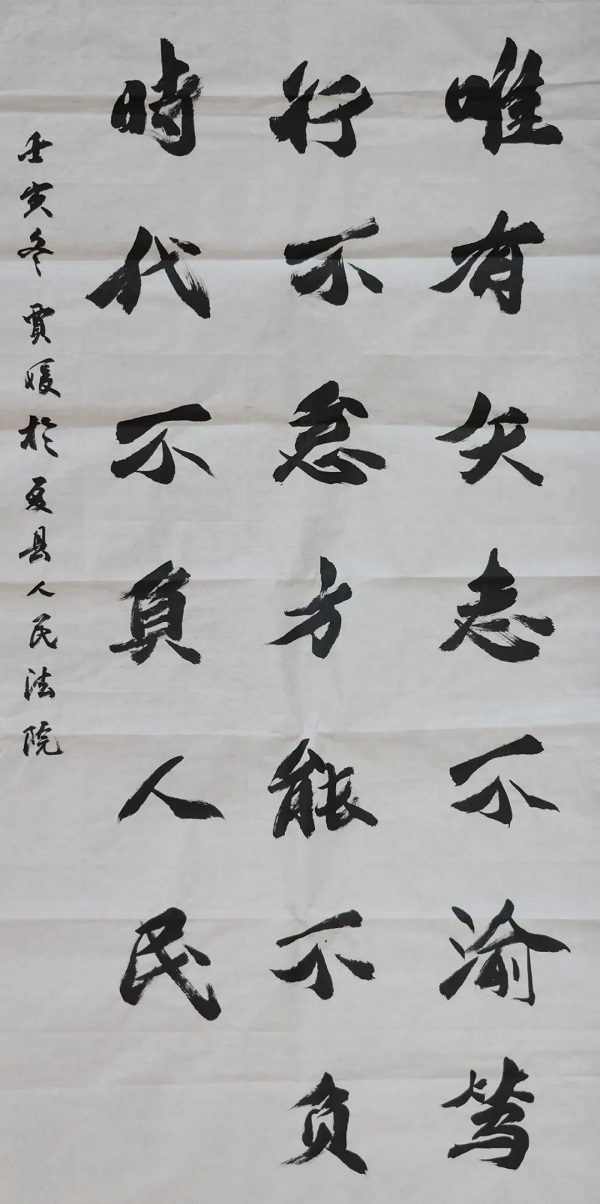 唯有矢志不渝笃
行不怠方能不负
時代不負人民
壬寅冬賈媛於夏县人民法院